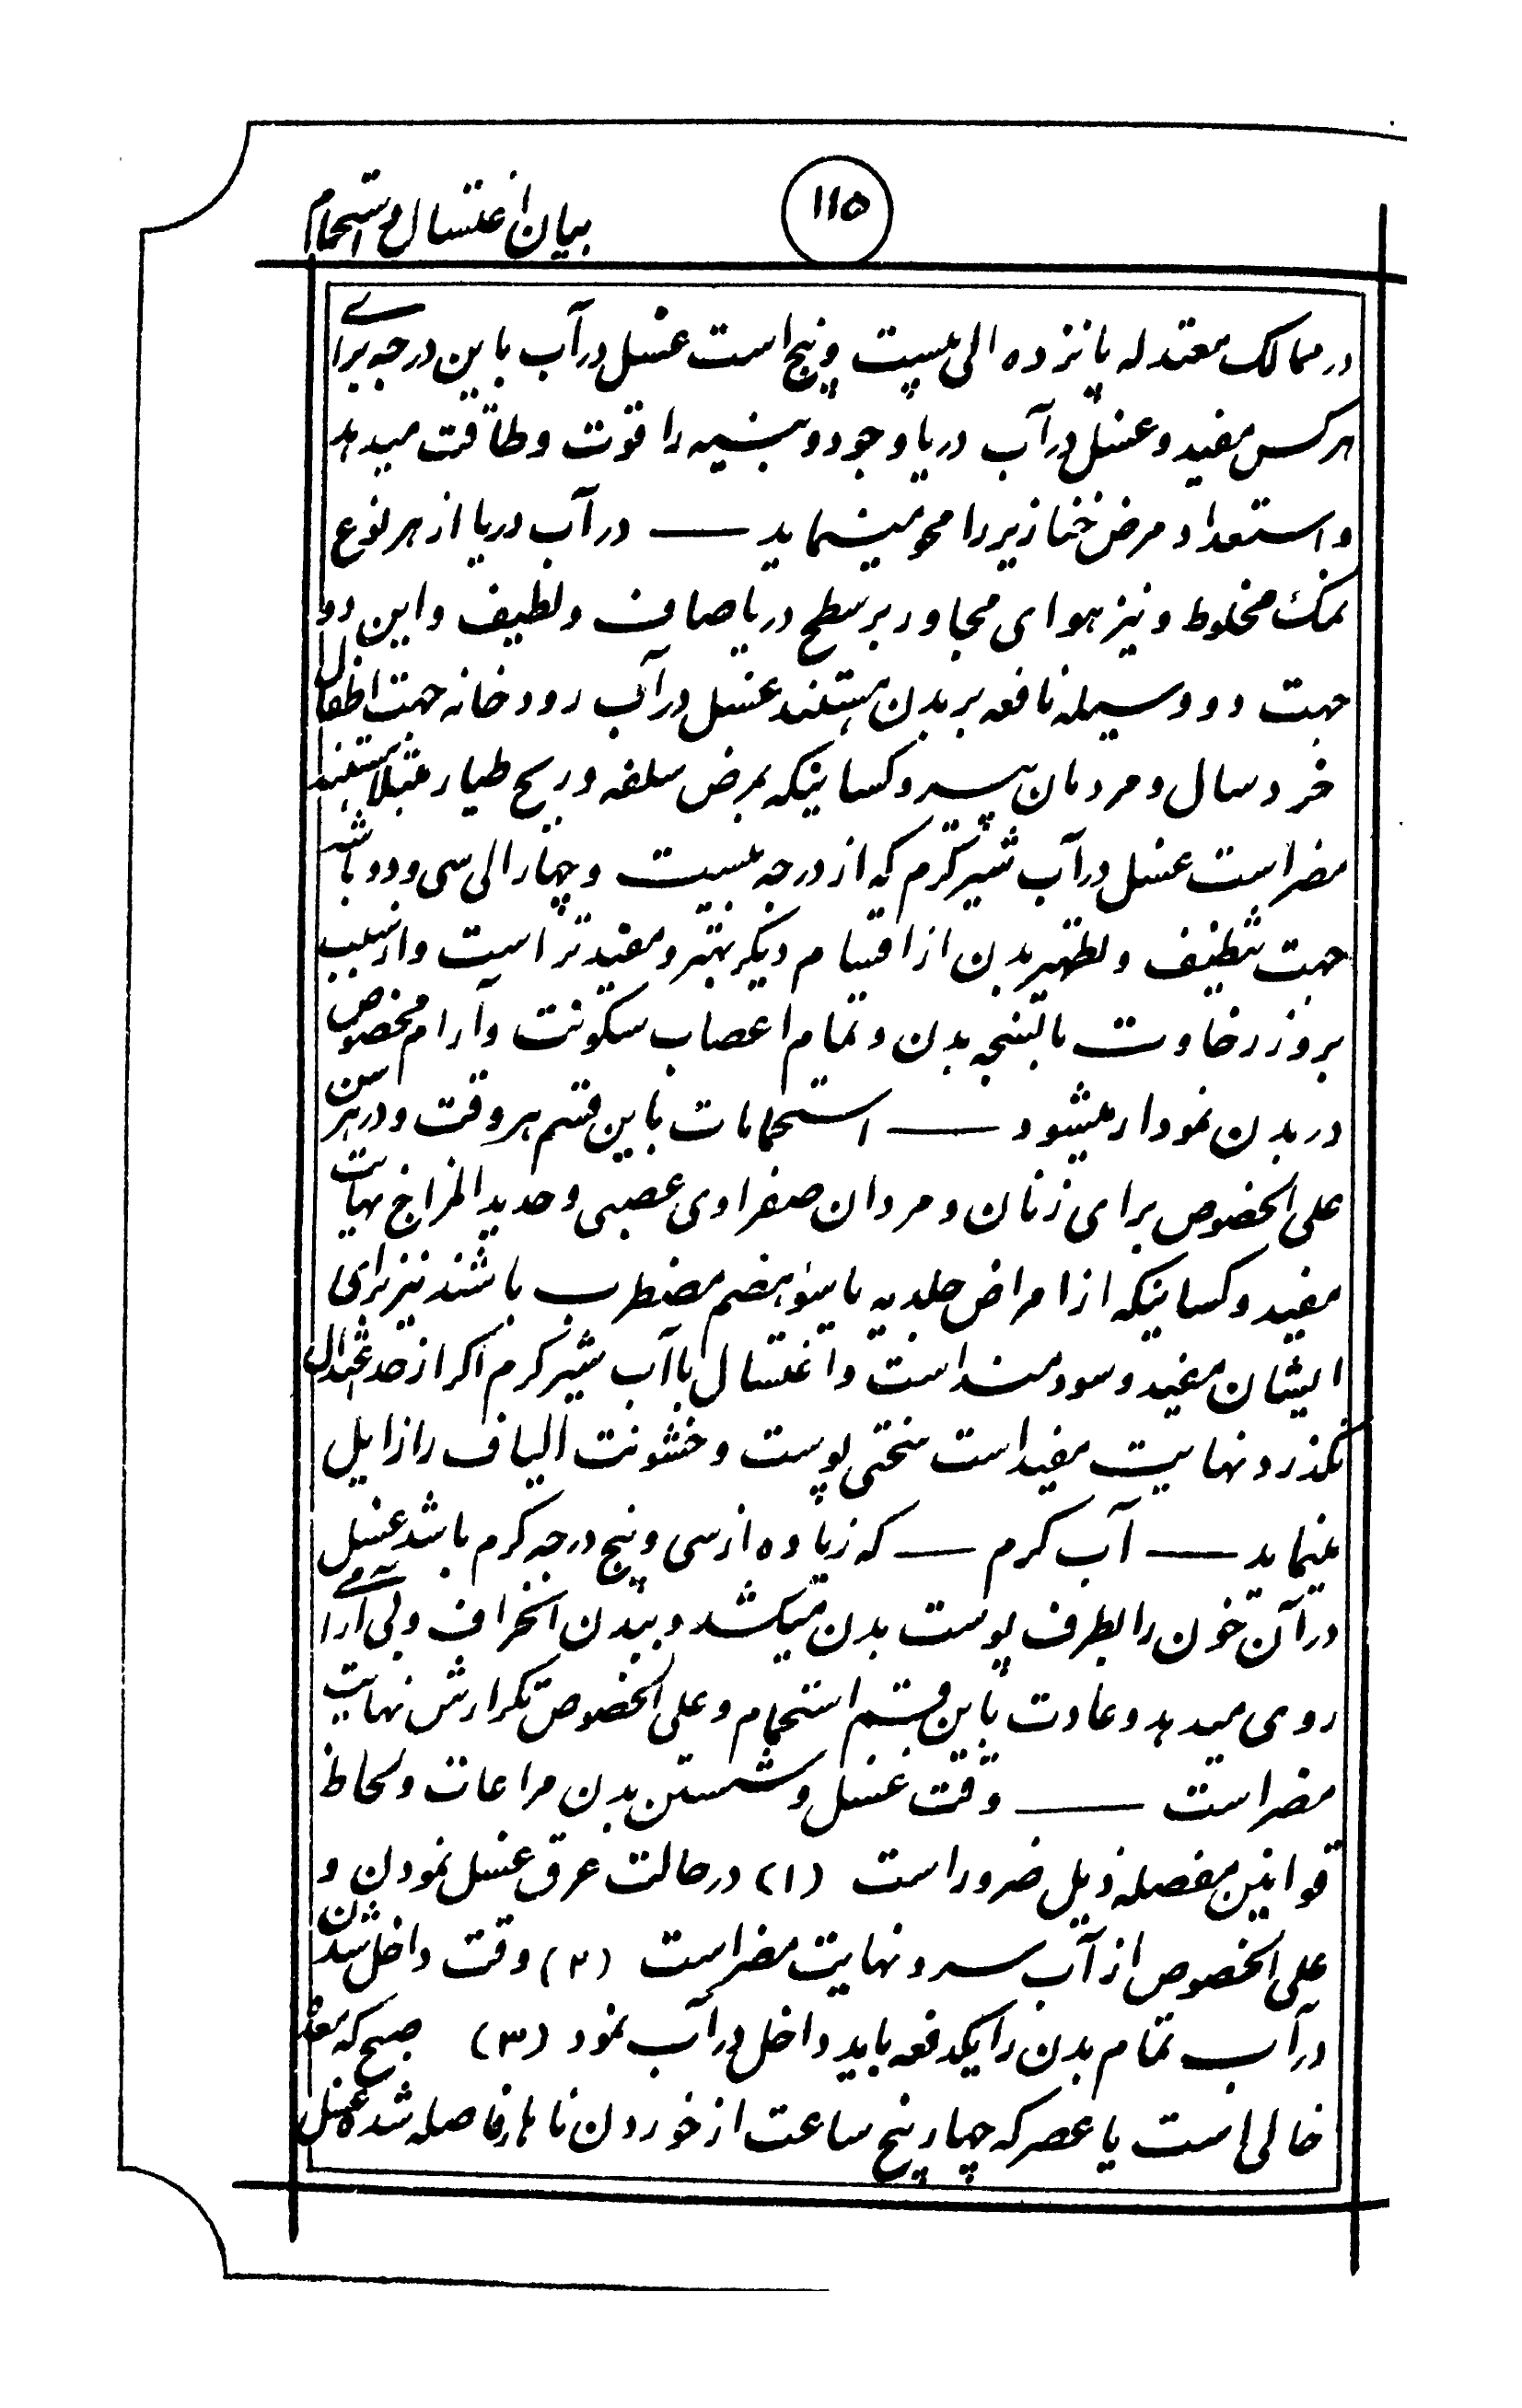 ۱۱۵
بیان اغتسال و استحمام
در ممالک معتدله پانزده الی بیست و پنج است غسل در آب باین درجه برای
هرکس مفید و غسل در آب دریا وجود و بنیه را قوت و طاقت میدهد
و استعداد مرض خنازیر را محو مینماید — در آب دریا از هر نوع
نمک مخلوط و نیز هوای مجاور بر سطح دریا صاف و لطیف و این دو
جهت دو وسیله نافعه بر بدن هستند غسل در آب رودخانه جهت اطفال
خرد سال و مردمان پیر و کسانیکه بمرض سلفه و ریح طیار مبتلا هستند
مضر است غسل در آب شیر گرم که از درجه بیست و چهار الی سی و دو باشد
جهت تنظیف و تطهیر بدن از اقسام دیگر بهتر و مفید تر است و از سبب
بروز رخاوت بالنتیجه بدن و تمام اعصاب سکونت و آرام مخصوص
در بدن نمودار میشود — استحمامات باین قسم هر وقت و در هر سن
علی الخصوص برای زنان و مردان صفراوی عصبی و حدید المزاج نهایت
مفید و کسانیکه از امراض جلدیه یا سوء هضم مضطرب باشند نیز برای
ایشان مفید و سودمند است و اغتسال با آب شیر گرم اگر از حد اعتدال
نگذرد نهایت مفید است سختی پوست و خشونت الیاف را زایل
مینماید — آب گرم — که زیاده از سی و پنج درجه گرم باشد غسل
در آن خون را بطرف پوست بدن میکشد و ببدن انحراف و بی آرامی
روی میدهد و عادت باین قسم استحمام و علی الخصوص تکرارش نهایت
مضر است — وقت غسل و شستن بدن مراعات و لحاظ
قوانین مفصله ذیل ضرور است (۱) در حالت عرق غسل نمودن و
علی الخصوص از آب سرد نهایت مضر است (۲) وقت داخل شدن
در آب تمام بدن را یکدفعه باید داخل در آب نمود (۳) صبح که معده
خالی است یا عصر که چهار پنج ساعت از خوردن ناهار فاصله شده غسل